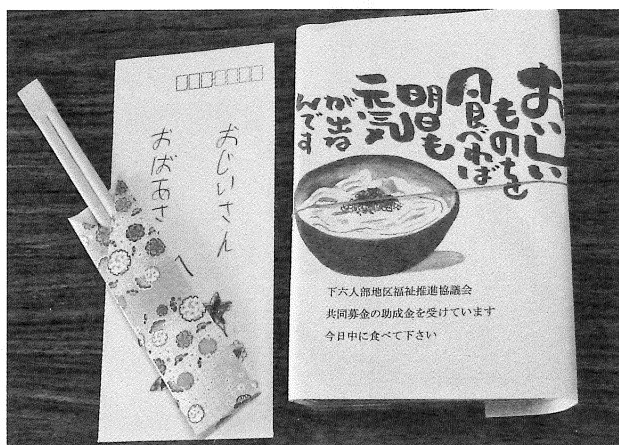 おじいさん
おばあさ
へ
おいしい
ものを
食べれば
明日も
元気
が出る
んです
下六人部地区福祉推進協議会
共同募金の助成金を受けています
今日中に食べて下さい